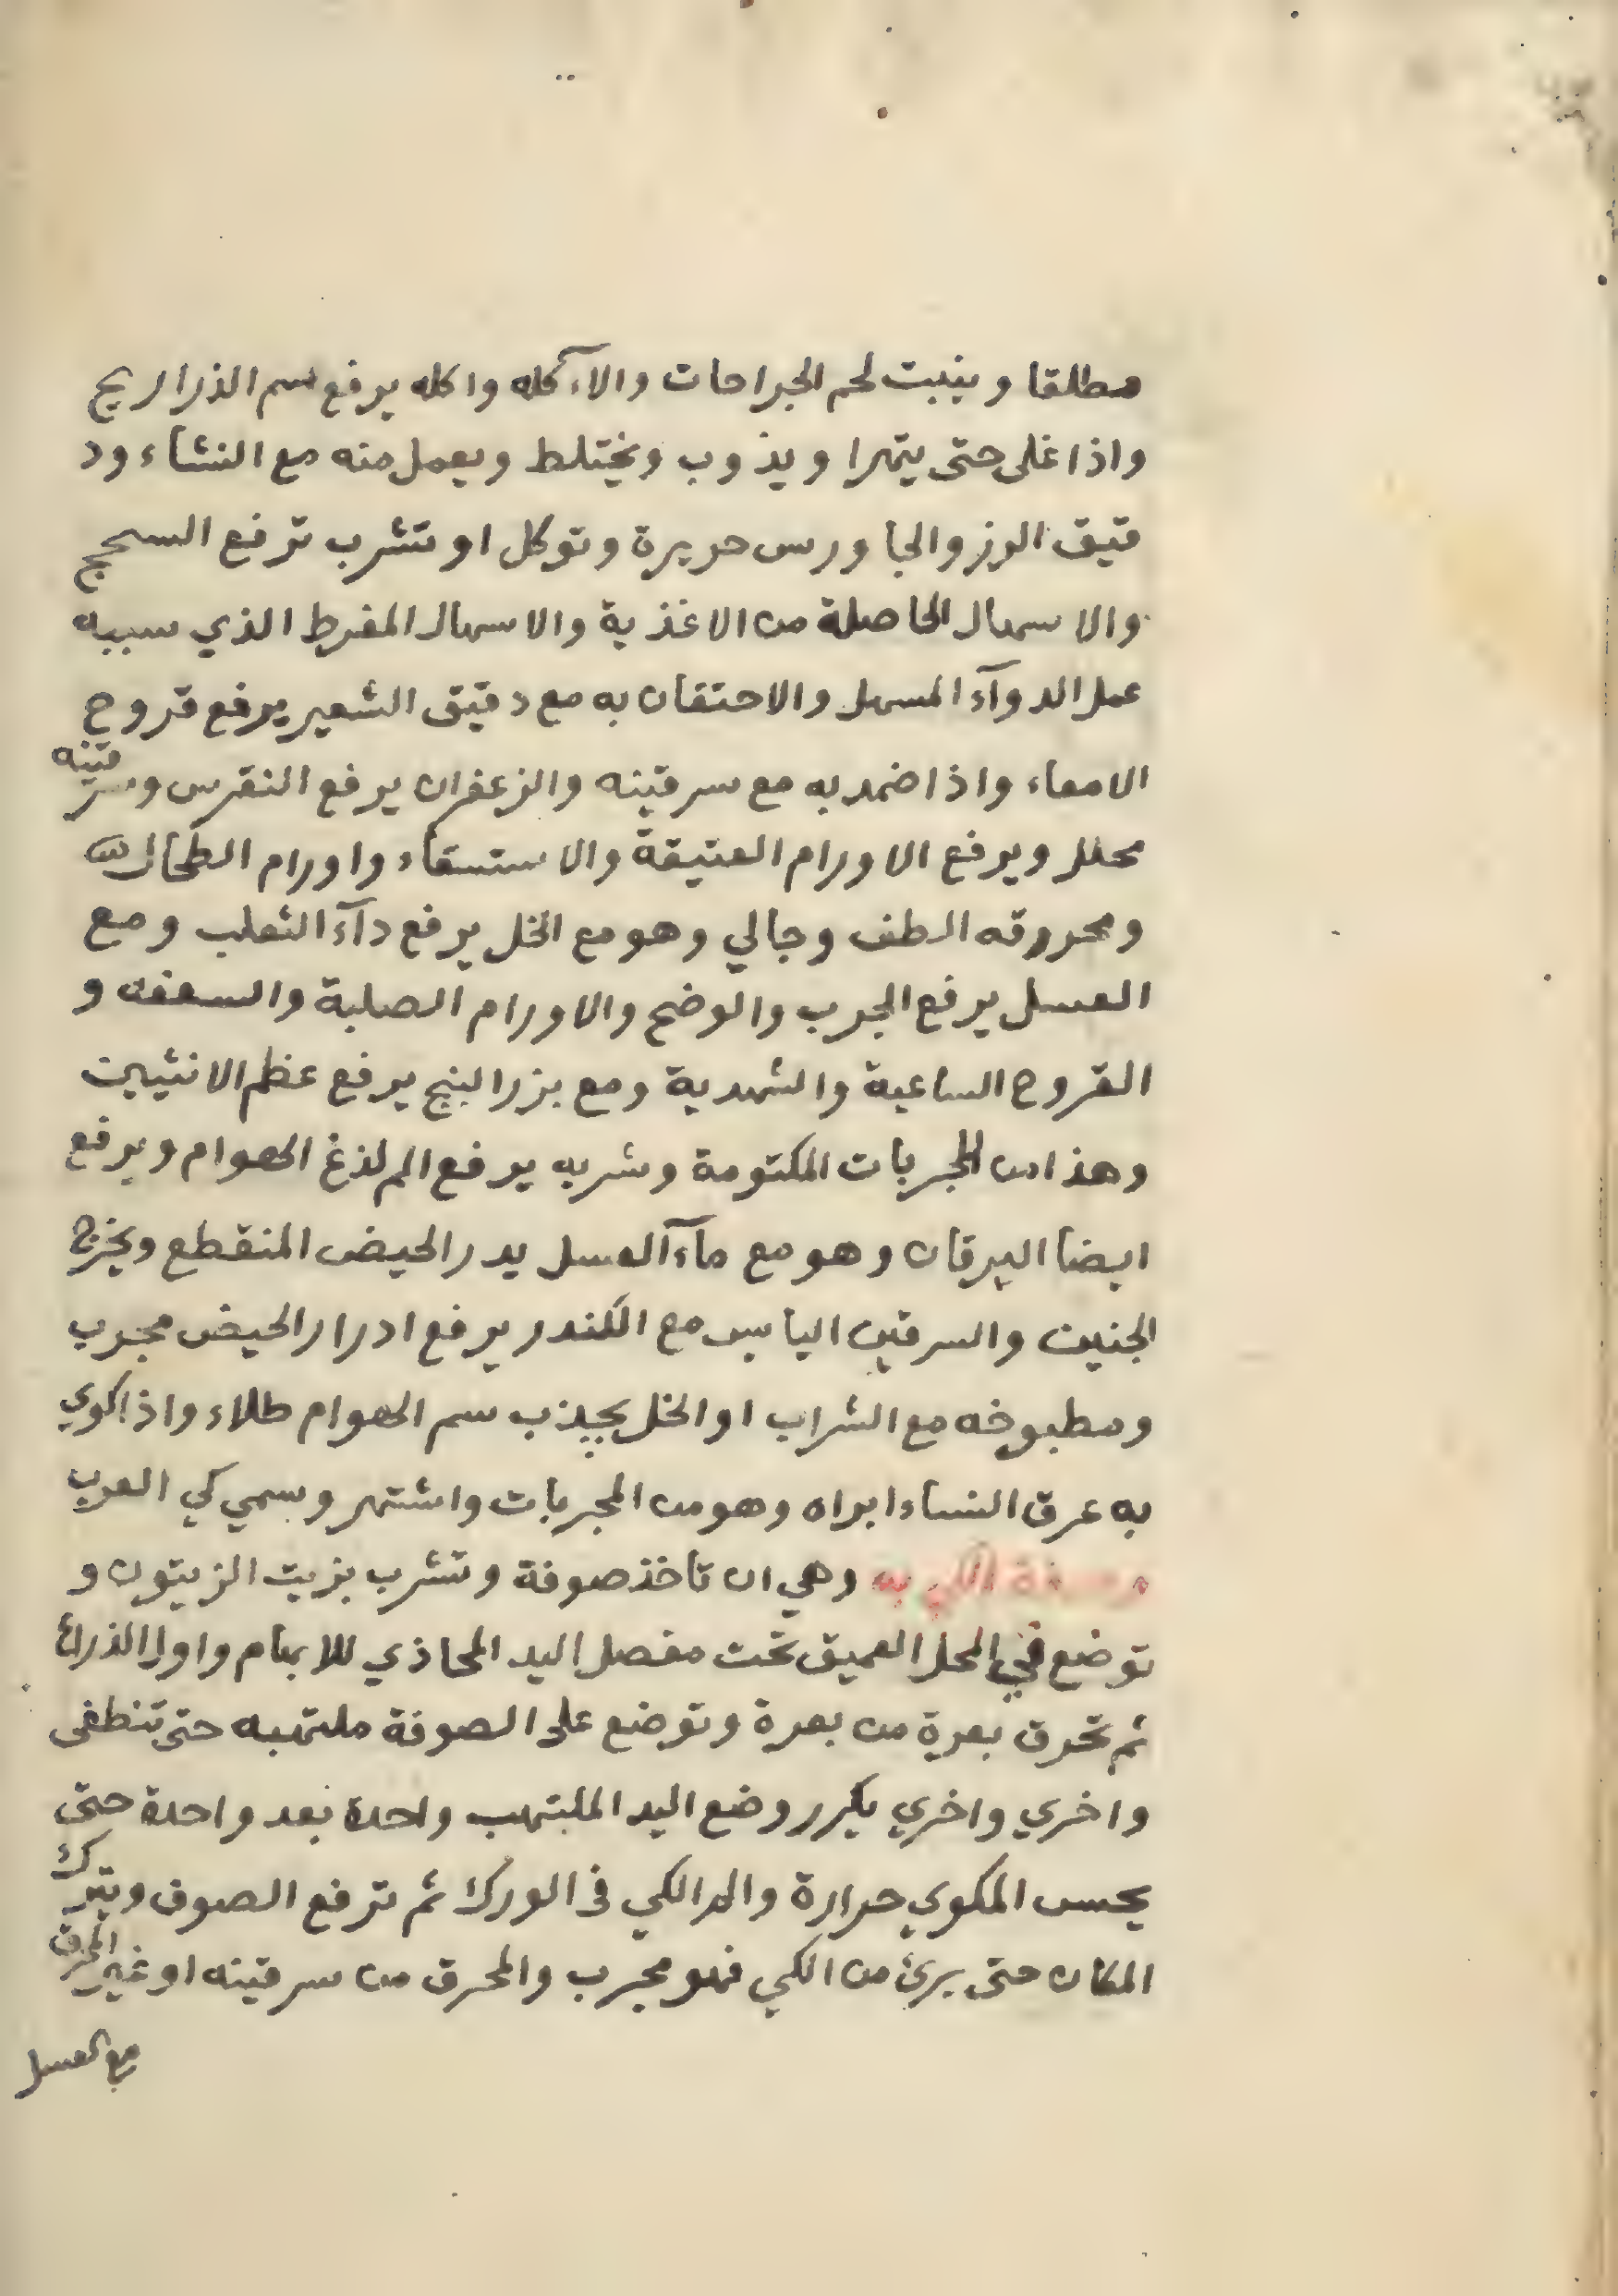 مطلقا وينبت لحم الجراحات والاٰكله واكله يرفع سم الذراريح
واذا غلى حتى يتهرا ويذوب ويختلط ويعمل منه مع النشاء ود
قيق الرز والجاورس حريرة وتوكل او تشرب ترفع السحج
والاسهال الحاصلة من الاغذية والاسهال المفرط الذي سببه
عمل الدوآء المسهل والاحتقان به مع دقيق الشعير يرفع قروح
الامعاء واذا ضمد به مع سرقينه والزعفران يرفع النقرس وسرقينه
محلل ويرفع الاورام العتيقة والاستسقاء واورام الطحال
ومحروقه الطف وجالي وهو مع الخل يرفع دآء الثعلب ومع
العسل يرفع الجرب والوضح والاورام الصلبة والسعفه و
القروح الساعية والشهدية ومع بزر البنج يرفع عظم الانثيين
وهذا من المجربات المكتومة وشربه يرفع الم لذغ الهوام ويرفع
ايضا اليرقان وهو مع مآء العسل يدر الحيض المنقطع ويخرج
الجنين والسرقين اليابس مع الكندر يرفع ادرار الحيض مجرب
ومطبوخه مع الشراب او الخل يجذب سم الهوام طلاء واذا كوي
به عرق النساء ابراه وهو من المجربات واشتهر وسمي كي العرب
وصفة الكي به وهي ان تاخذ صوفة وتشرب بزيت الزيتون و
توضع في المحل العميق تحت مفصل اليد المحاذي للابهام واول الذراع
ثم تحرق بعرة من بعرة وتوضع على الصوفة ملتهبه حتى تنطفى
واخري واخري يكرر وضع اليد الملتهب واحدة بعد واحدة حتى
يحس المكوي حرارة والم الكي فى الورك ثم ترفع الصوف ويترك
المكان حتى يرئ من الكي فهو مجرب والمحرق من سرقينه او غير المحرق
مع العسل